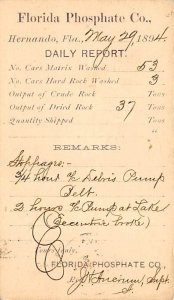 Florida Phosphate Co.,
Hernando, Fla., May 29, 1894
DAILY REPORT.
No. Cars Matrix Washed 53
No. Cars Hard Rock Washed 3
Output of Crude Rock Tons
Output of Dried Rock 37 Tons
Quantity Shipped Tons
REMARKS:
Stoppages:—
3/4 hour % Debris Pump
Belt.
2 hours % Pump at Lake
(Eccentric broke)
Yours truly,
FLORIDA PHOSPHATE CO.
By Supt.